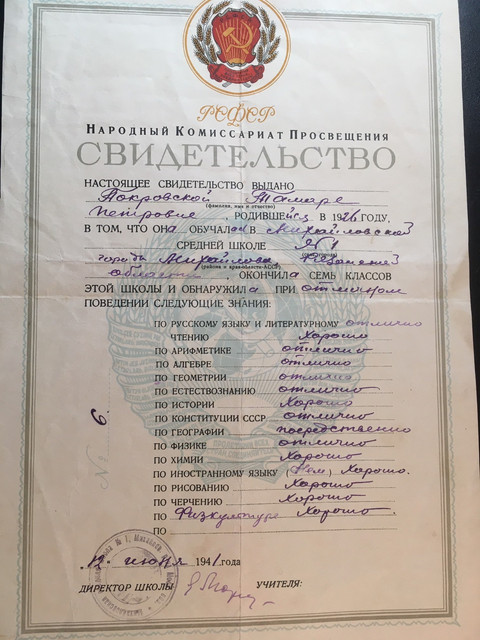 РСФСР
НАРОДНЫЙ КОМИССАРИАТ ПРОСВЕЩЕНИЯ
СВИДЕТЕЛЬСТВО
НАСТОЯЩЕЕ СВИДЕТЕЛЬСТВО ВЫДАНО
Покровской Тамаре
(фамилия, имя и отчество)
Петровне, РОДИВШЕЙСЯ В 1926 ГОДУ,
В ТОМ, ЧТО ОНА ОБУЧАЛАСЬ В Михайловской
СРЕДНЕЙ ШКОЛЕ №1
города Михайлова Рязанской
области, ОКОНЧИЛА СЕМЬ КЛАССОВ
ЭТОЙ ШКОЛЫ И ОБНАРУЖИЛА ПРИ отличном
ПОВЕДЕНИИ СЛЕДУЮЩИЕ ЗНАНИЯ:
ПО РУССКОМУ ЯЗЫКУ И ЛИТЕРАТУРНОМУ отлично
ЧТЕНИЮ хорошо
ПО АРИФМЕТИКЕ отлично
ПО АЛГЕБРЕ отлично
ПО ГЕОМЕТРИИ отлично
ПО ЕСТЕСТВОЗНАНИЮ отлично
ПО ИСТОРИИ хорошо
ПО КОНСТИТУЦИИ СССР отлично
ПО ГЕОГРАФИИ посредственно
ПО ФИЗИКЕ отлично
ПО ХИМИИ хорошо
ПО ИНОСТРАННОМУ ЯЗЫКУ (нем) хорошо.
ПО РИСОВАНИЮ хорошо
ПО ЧЕРЧЕНИЮ хорошо
ПО Физкультуре хорошо.
ПО
№ 6.
12 июня 1941 года
ДИРЕКТОР ШКОЛЫ УЧИТЕЛЯ: